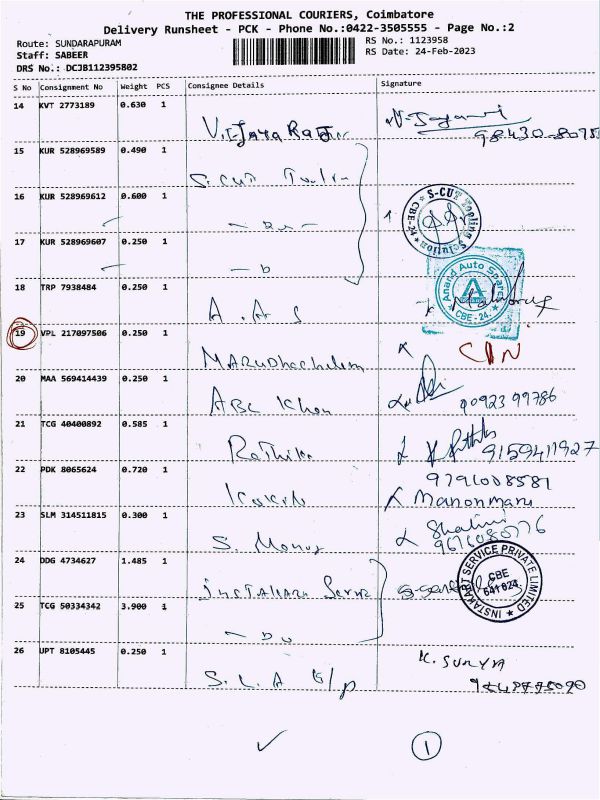 THE PROFESSIONAL COURIERS, Coimbatore
Delivery Runsheet - PCK - Phone No.:0422-3505555 - Page No.:2
Route: SUNDARAPURAM
RS No.: 1123958
Staff: SABEER
RS Date: 24-Feb-2023
DRS No.: DCJB112395802
S No Consignment No Weight PCS Consignee Details Signature
14 KVT 2773189 0.630 1
98430-80751
15 KUR 528969589 0.490 1
S.CUT
16 KUR 528969612 0.600 1
S-CUT Tooling Solution CBE-24
17 KUR 528969607 0.250 1
18 TRP 7938484 0.250 1
A.A S
Anand Auto Spares CBE-24
19 VPL 217097506 0.250 1
20 MAA 569414439 0.250 1
ABC Khan
90923 99786
21 TCG 40400892 0.585 1
Rathika
9159411927
22 PDK 8065624 0.720 1
9791008581
Manonmani
23 SLM 314511815 0.300 1
Shalini
24 DDG 4734627 1.485 1
INSTAKART SERVICE PRIVATE LIMITED CBE 641024
25 TCG 50334342 3.900 1
26 UPT 8105445 0.250 1
K. SURYA
S.L.A
1